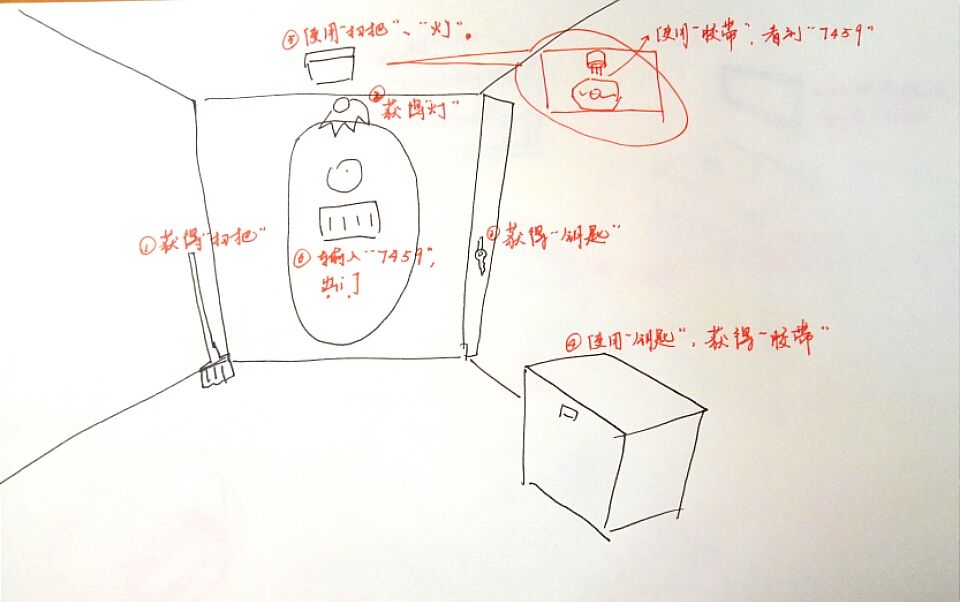 ⑤使用“扫把”、“灯”。
使用“胶带”，看到“7459”
②
获得“灯”
①获得“扫把”
③获得“钥匙”
⑥输入“7459”，
出门
④使用“钥匙”，获得“胶带”